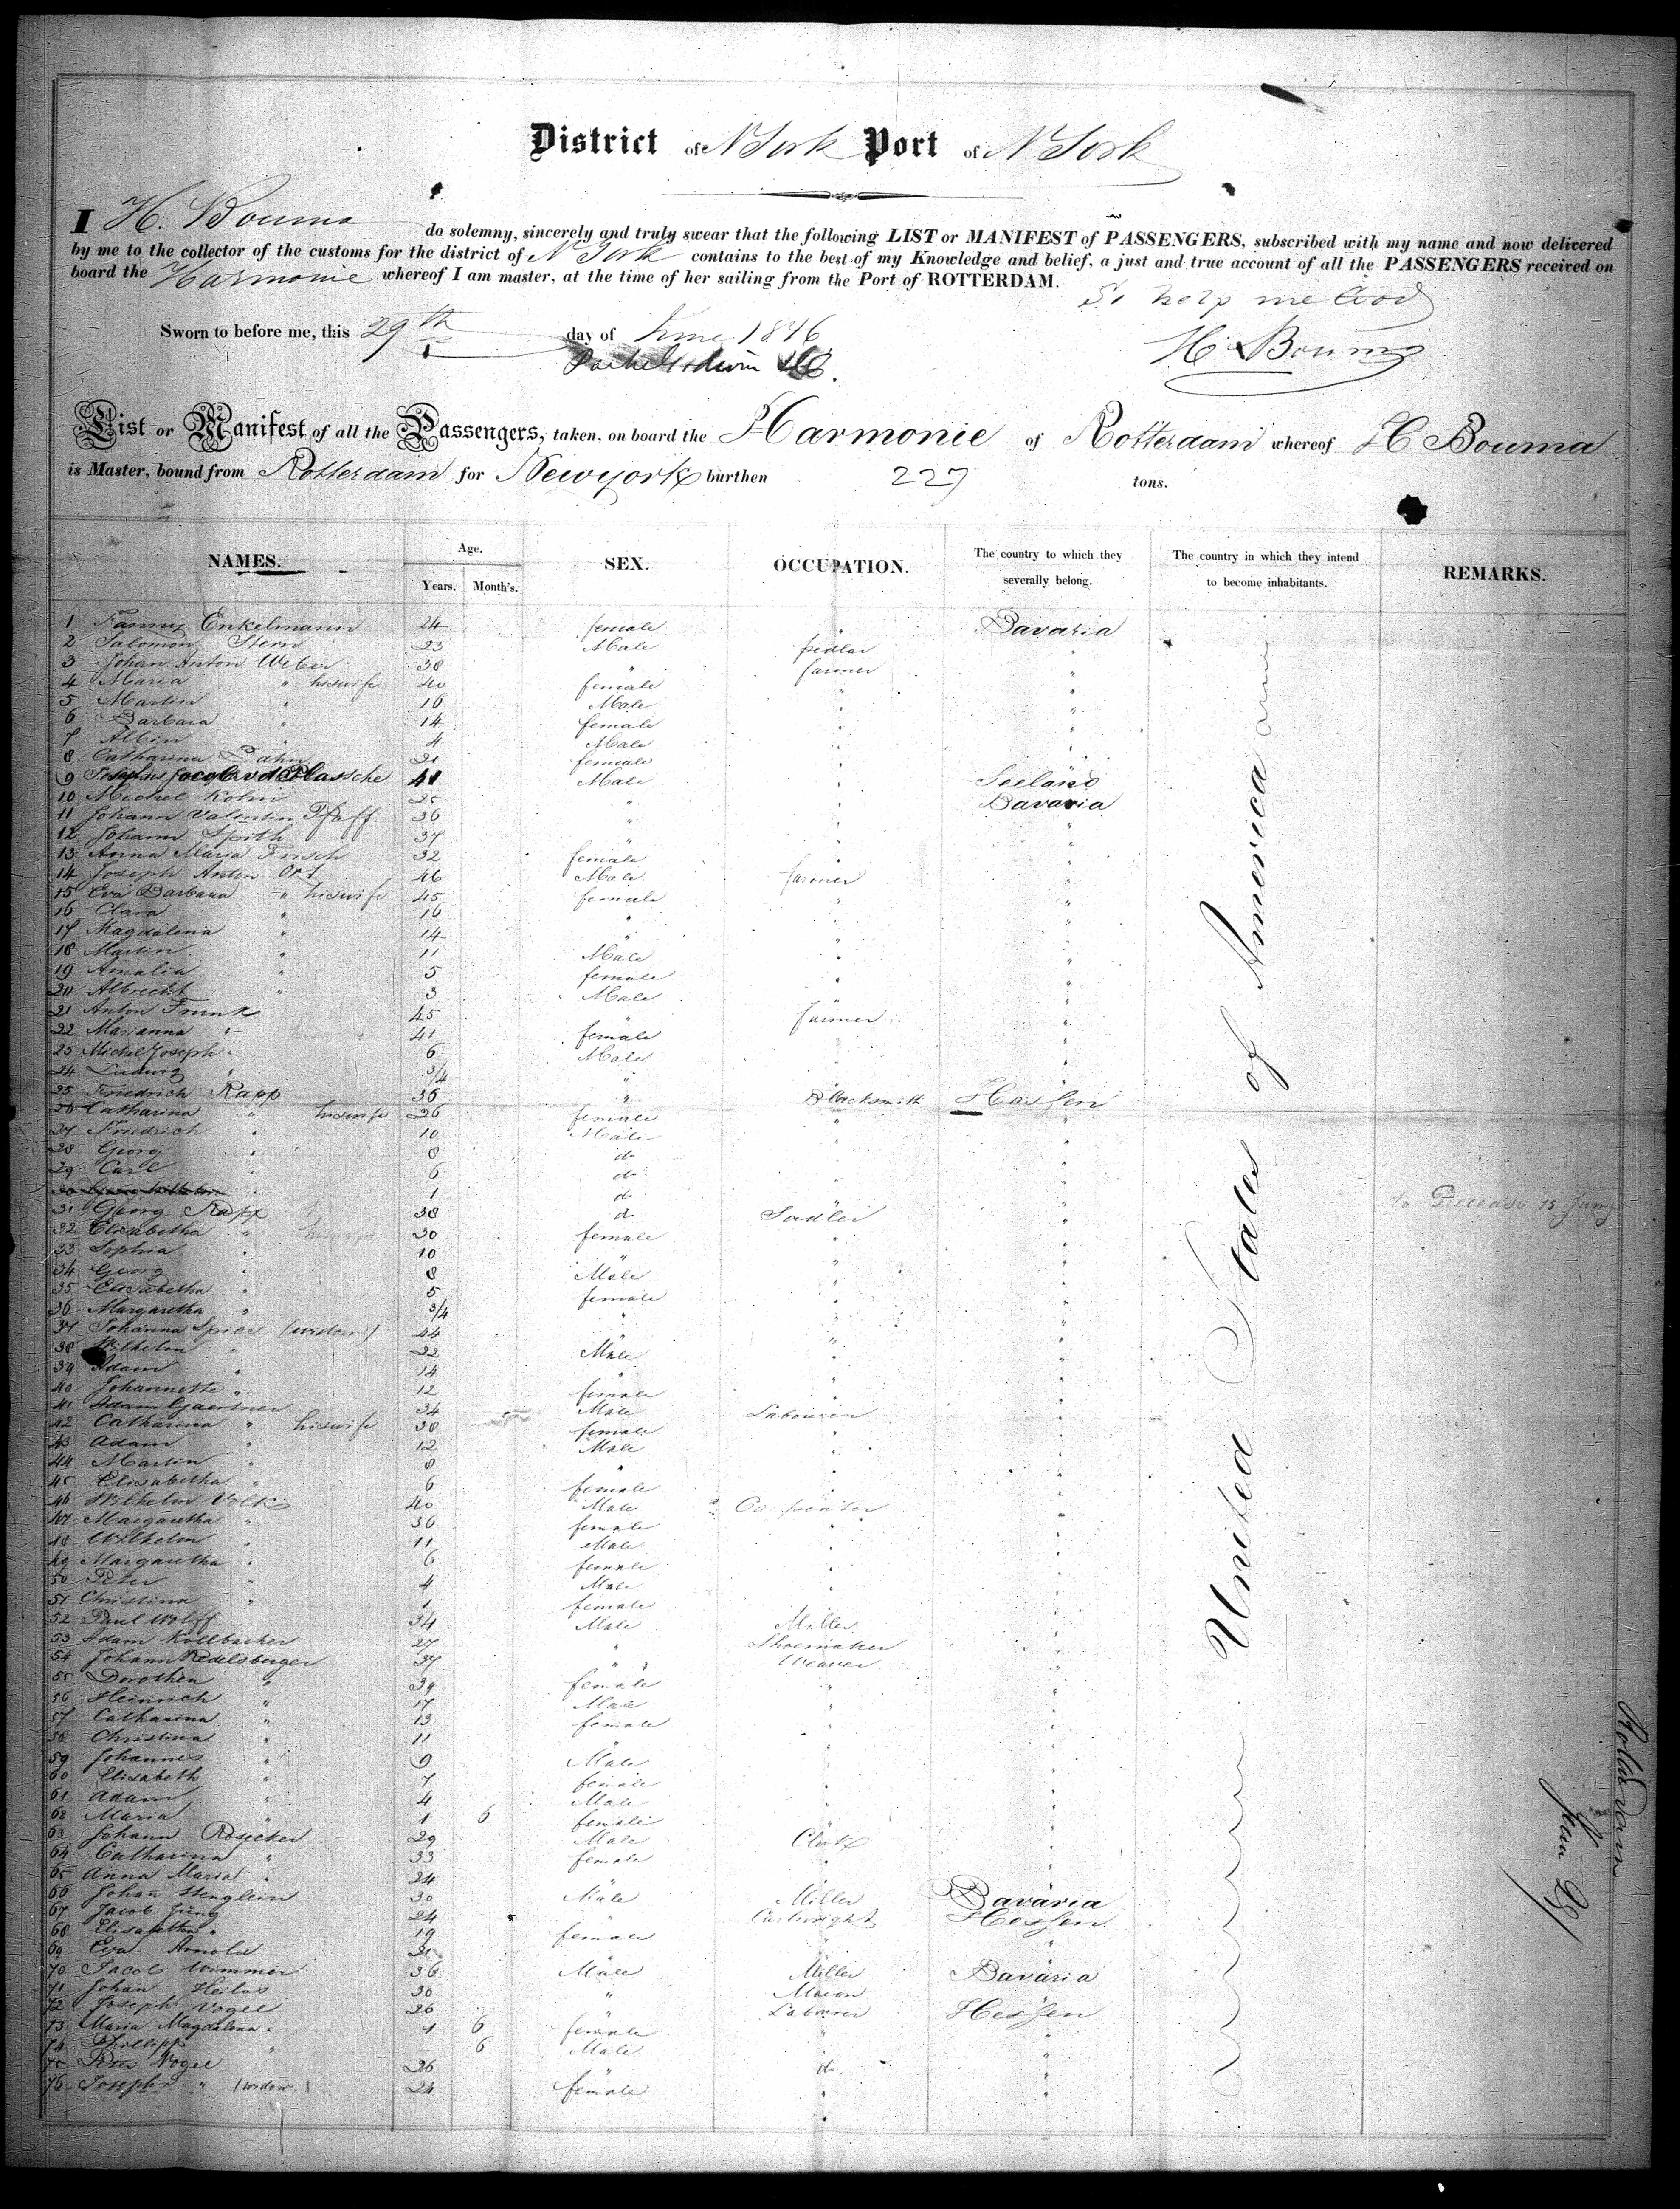 District of N York Port of N York
I H. Bouma do solemny, sincerely and truly swear that the following LIST or MANIFEST of PASSENGERS, subscribed with my name and now delivered
by me to the collector of the customs for the district of N York contains to the best of my Knowledge and belief, a just and true account of all the PASSENGERS received on
board the Harmonie whereof I am master, at the time of her sailing from the Port of ROTTERDAM.
So help me God
Sworn to before me, this 29th day of June 1846
H. Bouma
List or Manifest of all the Passengers, taken, on board the Harmonie of Rotterdam whereof H Bouma
is Master, bound from Rotterdam for Newyork burthen 227 tons.
NAMES. Age. Years. Month's. SEX. OCCUPATION. The country to which they severally belong. The country in which they intend to become inhabitants. REMARKS.
1 Fanny Enkelmann 24 female " Bavaria
2 Salomon Stern 23 Male pedlar "
3 Johan Anton Weber 38 " farmer "
4 Maria " hiswife 40 female " "
5 Martin " 16 Male " "
6 Barbara " 14 female " "
7 Albin " 4 Male " "
8 Catharina Dahn 21 female " "
9 Jacob v d Plassche 41 Male " Seeland
10 Michel Kohn 25 " " Bavaria
11 Johann Valentin Pfaff 36 " " "
12 Johann Spith 37 " " "
13 Anna Maria Frisch 32 female " "
14 Joseph Anton Ort 46 Male farmer "
15 Eva Barbara " hiswife 45 female " "
16 Clara " 16 " " "
17 Magdalena " 14 " " "
18 Martin " 11 Male " "
19 Amalia " 5 female " "
20 Albrecht " 3 Male " "
21 Anton Frunk 45 " farmer "
22 Marianna " 41 female " "
23 Michel Joseph " 6 Male " "
24 Ludwig " 3/4 " " "
25 Friedrich Rapp 36 " Blacksmith Hessen
26 Catharina " hiswife 36 female " "
27 Friedrich " 10 Male " "
28 Georg " 8 do " "
29 Carl " 6 do " "
30 Georg Wilhelm " 1 do " " Decease 15 Juny
31 Georg Rapp 38 do Sadler "
32 Elisabetha " hiswife 30 female " "
33 Sophia " 10 " " "
34 Georg " 8 Male " "
35 Elisabetha " 5 female " "
36 Margaretha " 3/4 " " "
37 Johanna Spier (widow) 44 " " "
38 Wilhelm " 22 Male " "
39 Adam " 14 " " "
40 Johannette " 12 female " "
41 Adam Gaertner 34 Male Labourer "
42 Catharina " hiswife 38 female " "
43 Adam " 12 Male " "
44 Martin " 8 " " "
45 Elisabetha " 6 female " "
46 Wilhelm Volk 40 Male Carpenter "
47 Margaretha " 36 female " "
48 Wilhelm " 11 Male " "
49 Margaretha " 6 female " "
50 Peter " 4 Male " "
51 Christina " 1 female " "
52 Paul Wolff 34 Male Miller "
53 Adam Kollbacher 27 " Shoemaker "
54 Johann Redelsberger 37 " Weaver "
55 Dorothea " 39 female " "
56 Heinrich " 17 Male " "
57 Catharina " 13 female " "
58 Christina " 11 " " "
59 Johannes " 9 Male " "
60 Elisabeth " 7 female " "
61 Adam " 4 Male " "
62 Maria " 1 6 female " "
63 Johann Rosecker 29 Male Clark "
64 Catharina " 33 female " "
65 Anna Maria " 24 " " "
66 Johan Stenglein 30 Male Miller Bavaria
67 Jacob Jung 24 " Cartwright Hessen
68 Elisabetha " 19 female " "
69 Eva Arnold 21 " " "
70 Jacob Wimmer 36 Male Miller Bavaria
71 Johan Heilos 30 " Macon "
72 Joseph Vogel 26 " Labourer Hessen
73 Maria Magdalena " 1 6 female " "
74 Phillipp " – 6 Male " "
75 Vogel 26 " do "
76 " (widow) 24 female " "
United States of America
Rotterdam
June 29